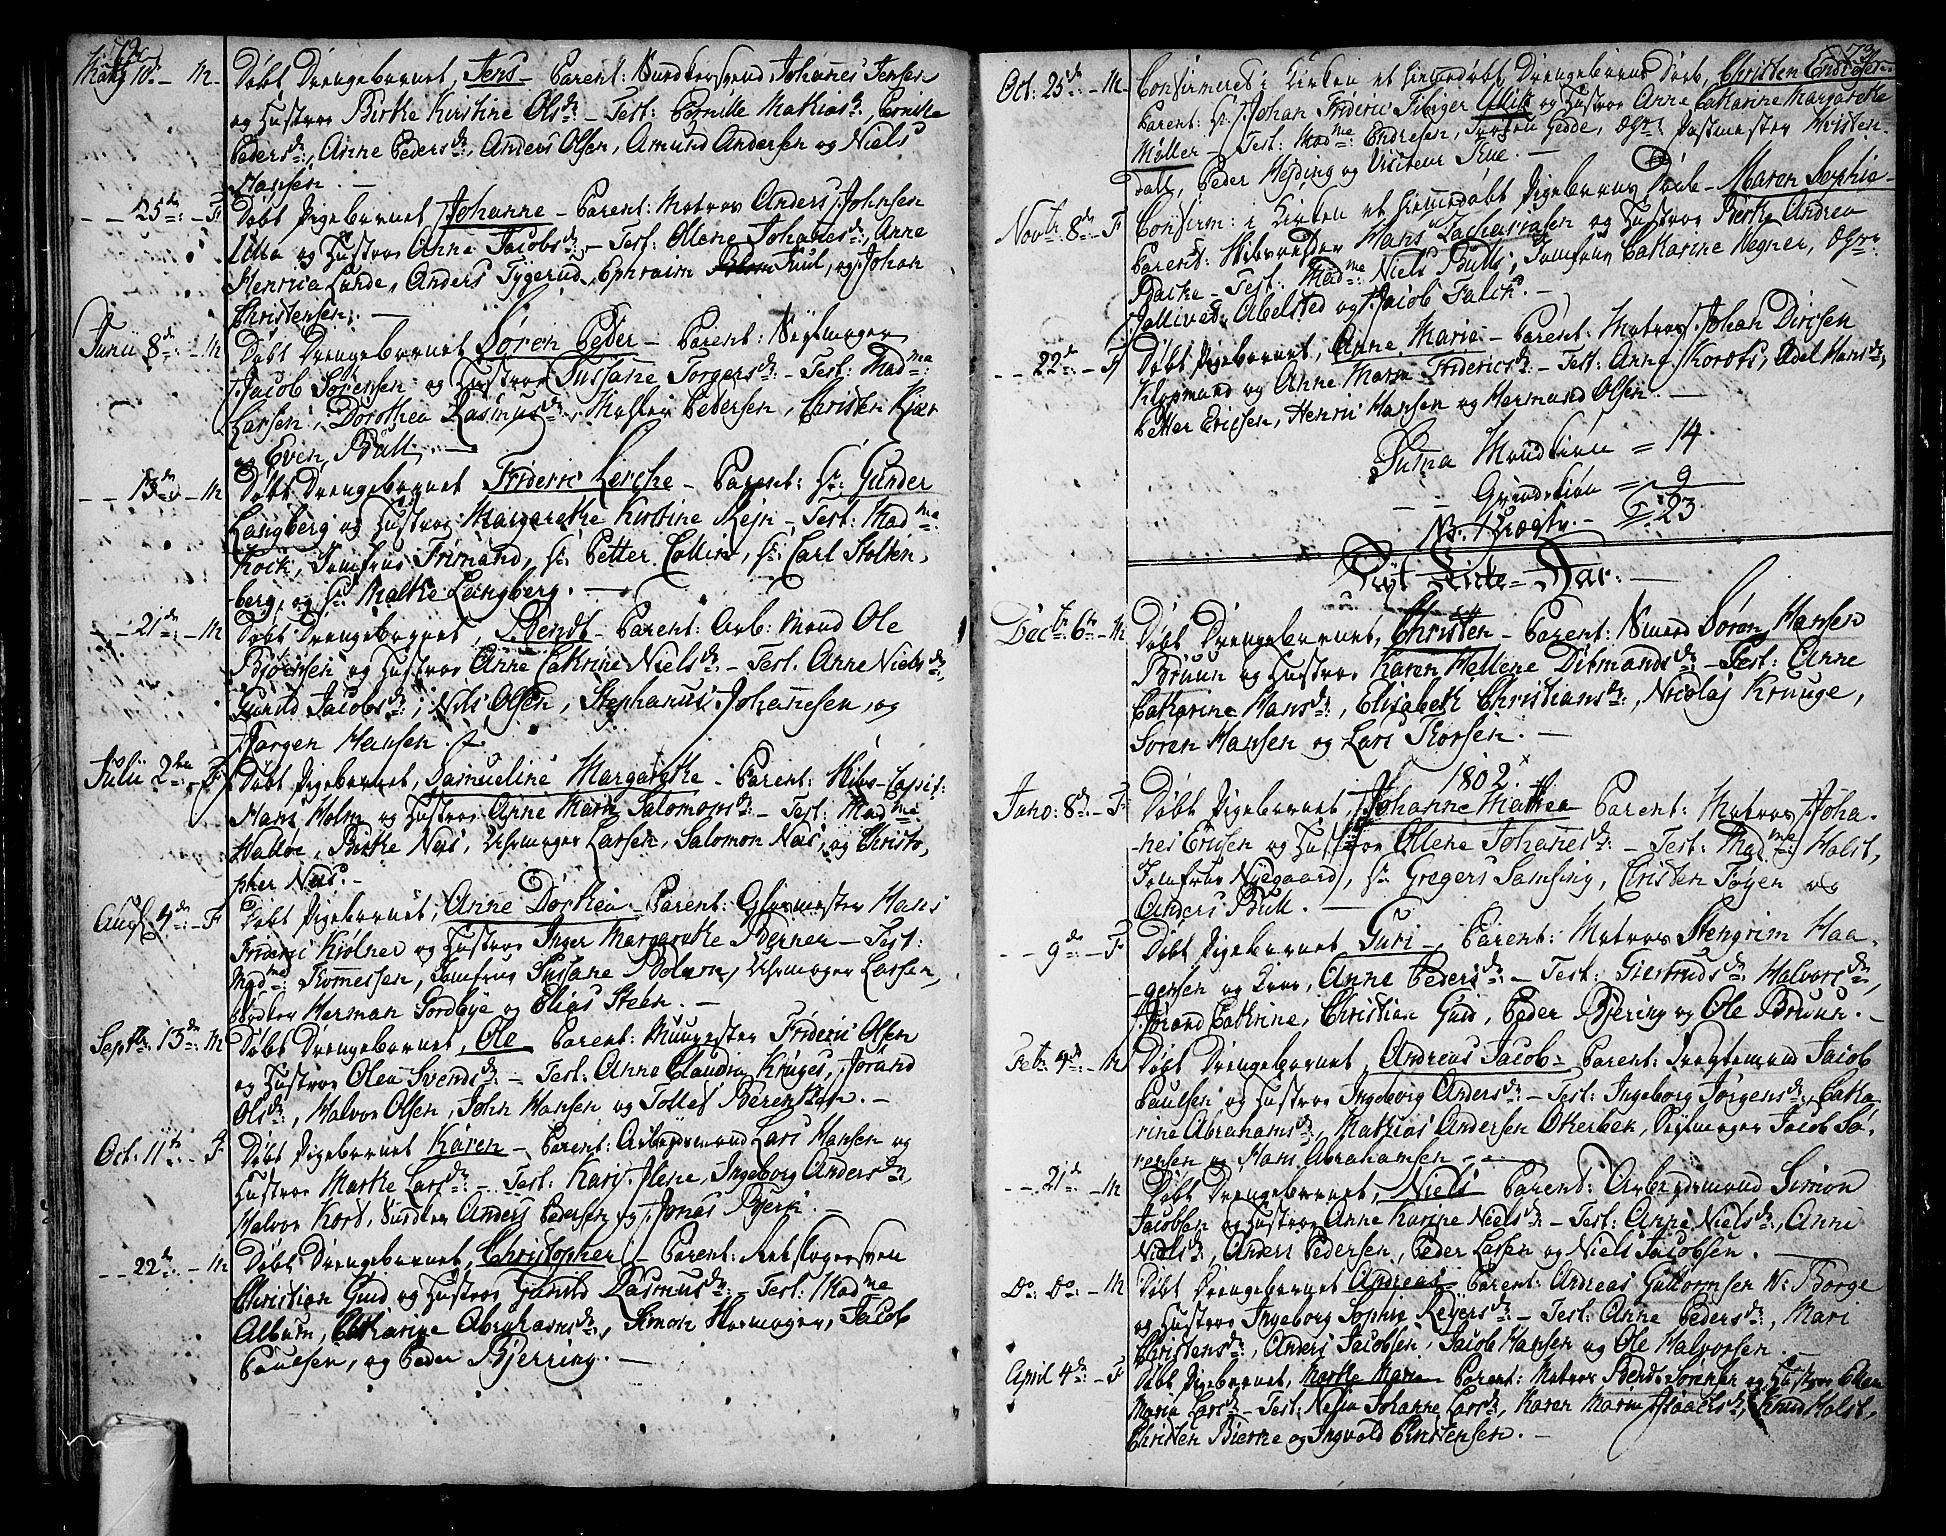 72.
Maÿ 10de – M. Døbt Drengebarnet, Jens – Parent: Johannes Jensen
og Hustroe Birthe Kirstine Olsdr. – Test: Pernille Mathiasdr., Pernille
Pedersdr., Anne Pedersdr., Anders Olsen, Amund Andersen og Niels
Hansen. –
– – 25de: – F Døbt Pigebarnet, Johanne – Parent: Matros Anders Johnsen
Ulla og Hustroe Anne Jacobsdr. – Test: Ollene Johanesdr., Anne
Henrica Lunde, Anders Tygerud, Ephraim Juul, og Johan
Christensen. –
Junii 8de: – M Døbt Drengebarnet Søren Peder – Parent: Seÿlmager
Jacob Sørensen og Hustroe Sussane Torgersdr. – Test: Madme
Larsen, Dorothea Rasmusdr., Pedersen, Christen Kjær
og Even Bull. –
– – 13de – M Døbt Drengebarnet Frideric Lerche – Parent: Hr. Gunder
Langberg og Hustroe Margarethe Kirstine Rejn – Test: Madme
Kock, Jomfrue Frimand, Hr. Petter Collin, Hr. Carl Stolten-
berg, og Hr. Malthe Langberg. –
– 21de: – M Døbt Drengebarnet, Bendt – Parent: Arb: Mand Ole
Bjørnsen og Hustroe Anne Cathrine Nielsdr. – Test. Anne Nielsdr.,
Gunild Jacobsdr., Nils Olsen, Stephanus Johannesen, og
Jørgen Hansen.
Julii 2den – F Døbt Pigebarnet, Samueline Margarethe – Parent:
Hans Holm og Hustroe Anne Maria Salomonsdr. – Test: Madme
Walløe, Birthe Neis, Uhrmager Larsen, Salomon Neis, og Christo-
pher Neis. –
Aug. 4de – F Døbt Pigebarnet, Anne Dorthea – Parent: Glarmester Hans
Frideric Kiølner og Hustroe Inger Margarethe Berner – Test:
Madme Thommessen, Jomfrue Sussane Uhrmager Larsen,
Herman Gordbye og Elias Steen. –
Septbr. 13de – M Døbt Drengebarnet, Ole – Parent: Muurmester Frideric Olsen
og Hustroe Olea Svendsdr. – Test: Anne Claudia Krüger, Jorand
Olsdr., Halvor Olsen, John Hansen og Tollef Berentzen. –
Oct. 11te – F Døbt Pigebarnet Karen – Parent: Arbejdsmand Lars Hansen og
Hustroe Marthe Larsdr. – Test: Kari Ingeborg Andersdr.,
Halvor Kord, Anders Pedersen og Jonas Bjerk. –
– – 22de: – M Døbt Drengebarnet, Christopher – Parent:
Christian Guid og Hustroe Gunild Rasmusdr. – Test: Madme
Album, Catharine Abrahamsdr., Simon Skomager, Jacob
Paulsen, og Peder Bjerring. –
73.
Oct: 25de: – M – Confirmeret i Kirken et hiemmedøbt Drengebarns Daab, Christen Endresen –
Parent: Hr. Johan Frideric Fibiger Ulik og Hustroe Anne Catharine Margarethe
Møller – Test: Madme: Endresen, Gedde, Christen-
dall, Peder Hesding og Visiteur True. –
Novbr. 8de – F Confirm: i Kirken et hiemmedøbt Pigebarns Daab – Maren Sophia –
Parent: Hans Zachariasen og Hustroe Birthe Andrea
Backe – Test: Madme Niels Bull, Jomfrue Catharine Wegner,
Abelsted og Jacob Falck. –
– – 22de: – F Døbt Pigebarnet, Anne Marie – Parent: Matros Johan Diricsen
Klopmand og Anne Maria Fridericsdr. – Test: Anne Kordts, Adel Hansdr.,
Petter Ericsen, Henric Hansen og Hermand Olsen. –
Suma Mandkiøn = 14
Qvindekiøn = 9
S: 23
Nyt Kirke-Aar. –
Decbr. 6te – M Døbt Drengebarnet, Christen – Parent: Søren Hansen
Bruun og Hustroe Karen Hellene Ditmandsdr. – Test: Anne
Catharine Hansdr., Elisabeth Christiansdr., Nicolaj Kruuge,
Søren Hansen og Lars Thorsen. –
1802.
Janv: 8de: – F Døbt Pigebarnet, Johanne Mathea Parent: Matros Joha-
nes Ericsen og Hustroe Ollene Johanesdr. – Test: Madme Holst,
Jomfrue Nyegaard, Hr. Gregers Samsing, Christen Føyen og
Anders Bull. –
– – 9de: – F Døbt Pigebarnet Guri – Parent: Matros Stengrim Haa-
gensen og Kone, Anne Pedersdr. – Test: Giertruds Halvorsdr.,
Jorand Cathrine, Christian Guid, Peder Bjering og Ole Bruun. –
Febr. 4de: – M Døbt Drengebarnet, Andreas Jacob – Parent: Jacob
Paulsen og Hustroe Ingeborg Andersdr. – Test: Ingeborg Jørgensdr., Catha-
rine Abrahamsdr., Mathias Andersen Otterbek, Seÿlmager Jacob Sø-
rensen og Hans Abrahamsen –
– – 21de – M Døbt Drengebarnet, Niels Parent: Arbejdsmand Simon
Jacobsen og Hustroe Anne Karine Nielsdr. – Test: Anne Nielsdr., Anne
Nielsdr., Anders Pedersen, Peder Larsen og Niels Jacobsen. –
Do: Do: – M Døbt Drengebarnet Andreas Parent: Andreas Guttormsen Borge
og Hustroe Ingeborg Sophie Reyersdr. – Test: Anne Pedersdr., Mari
Christensdr., Anders Jacobsen, Jacob Hansen og Ole Halvorsen. –
April 4de: – F Døbt Pigebarnet, Marthe Maria Parent: Matros Bendt Sørensen og Hustroe Ellen
Maria Larsdr. – Test: Johanne Larsdr., Karen Maria Isaacsdr., Knud Holst,
Christen Bierke og Ingvold Christensen. –